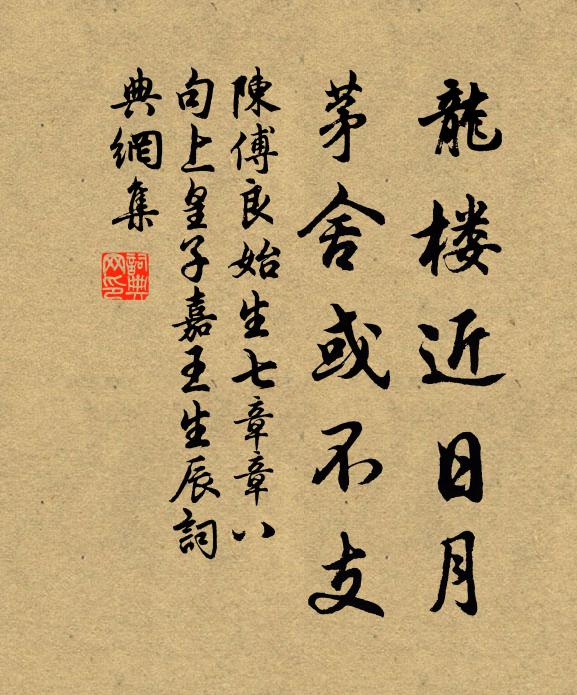 龍楼近日月
茅舍或不支
陳傅良始生七章章八
句上皇子嘉王生辰詞
典網集
詞典網印